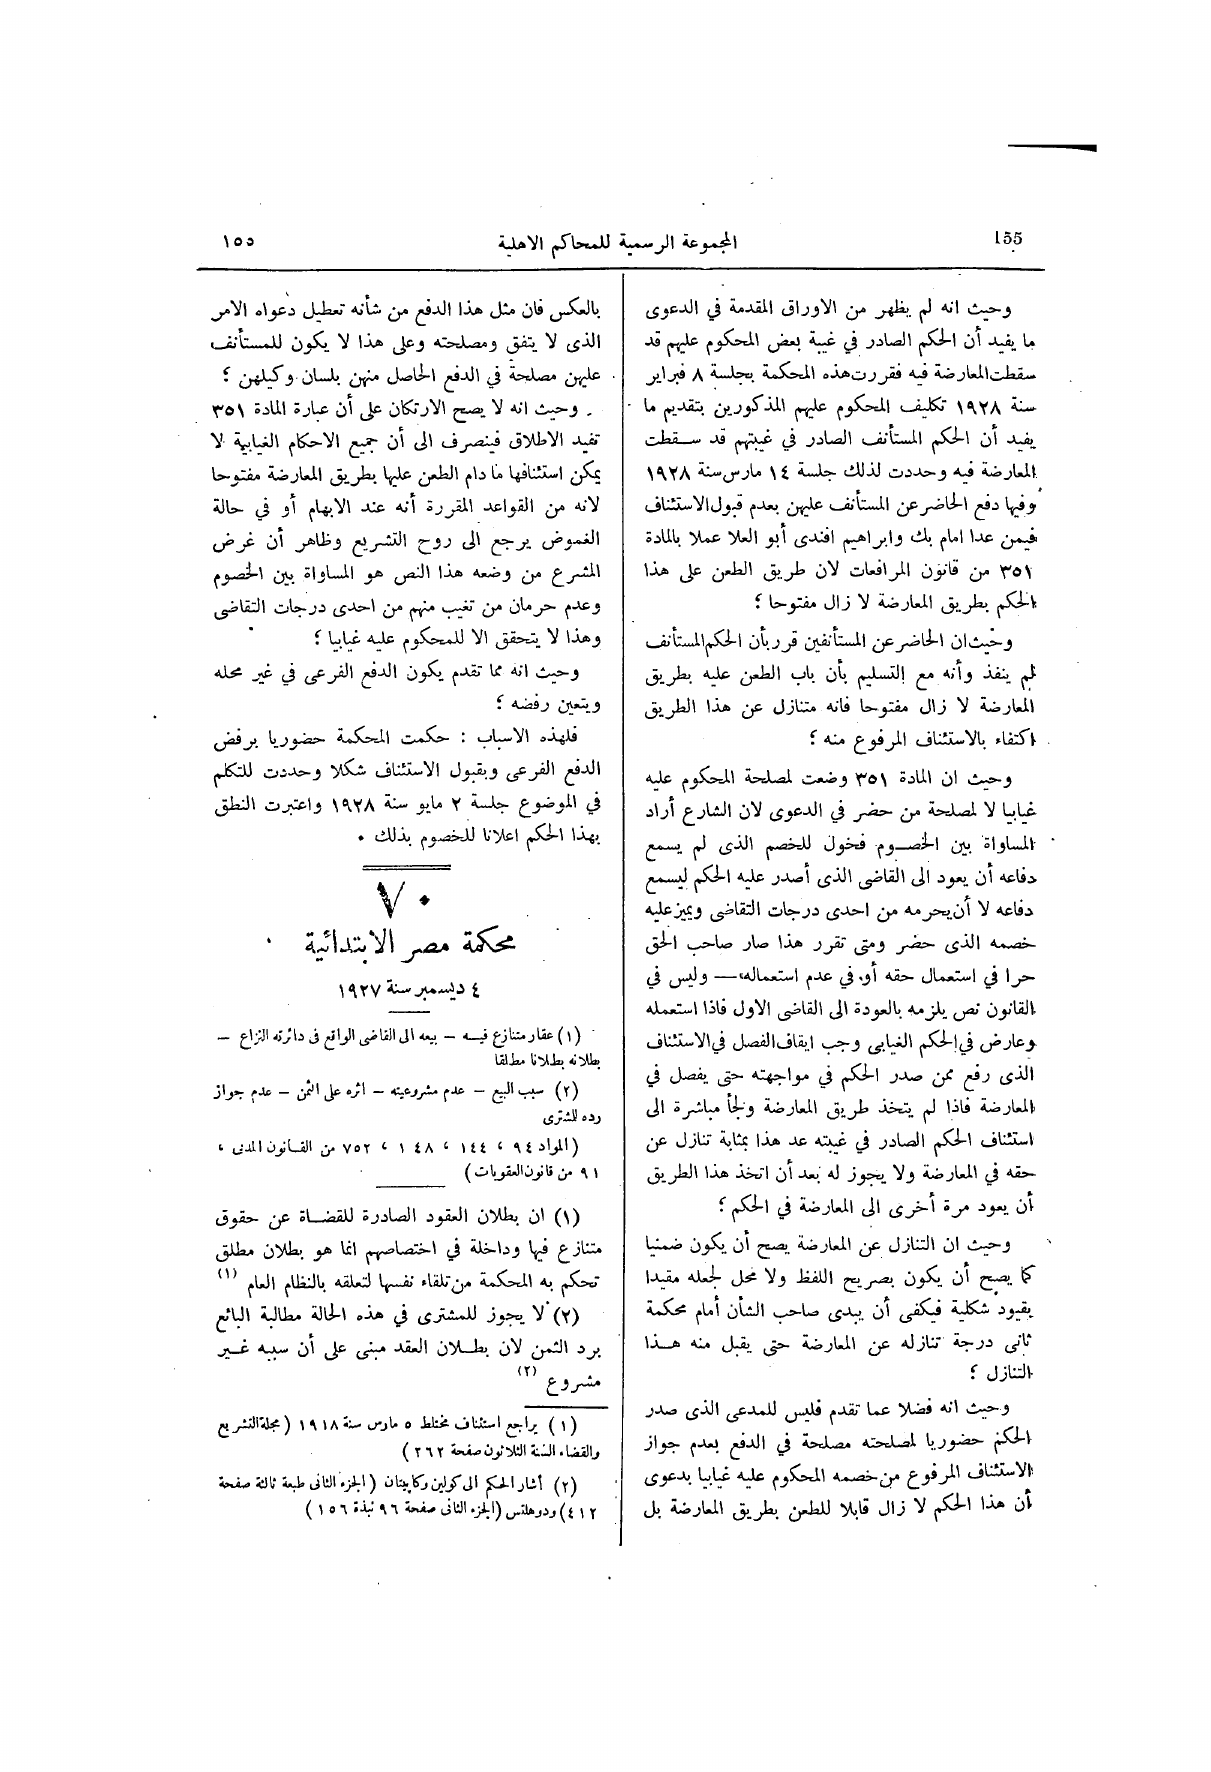 155
المجموعة الرسمية للمحاكم الاهلية
١٥٥
وحيث انه لم يظهر من الاوراق المقدمة في الدعوى
ما يفيد أن الحكم الصادر في غيبة بعض المحكوم عليهم قد
سقطت المعارضة فيه فقررت هذه المحكمة بجلسة ٨ فبراير
سنة ١٩٢٨ تكليف المحكوم عليهم المذكورين بتقديم ما
يفيد أن الحكم المستأنف الصادر في غيبتهم قد سقطت
المعارضة فيه وحددت لذلك جلسة ١٤ مارس سنة ١٩٢٨
وفيها دفع الحاضر عن المستأنف عليهن بعدم قبول الاستئناف
فيمن عدا امام بك وابراهيم افندى أبو العلا عملا بالمادة
٣٥١ من قانون المرافعات لان طريق الطعن على هذا
الحكم بطريق المعارضة لا زال مفتوحا ؛
وحيث ان الحاضر عن المستأنفين قرر بأن الحكم المستأنف
لم ينفذ وأنه مع التسليم بأن باب الطعن عليه بطريق
المعارضة لا زال مفتوحا فانه متنازل عن هذا الطريق
اكتفاء بالاستئناف المرفوع منه ؛
وحيث ان المادة ٣٥١ وضعت لمصلحة المحكوم عليه
غيابيا لا لمصلحة من حضر في الدعوى لان الشارع أراد
المساواة بين الخصوم فخول للخصم الذى لم يسمع
دفاعه أن يعود الى القاضى الذى أصدر عليه الحكم ليسمع
دفاعه لا أن يحرمه من احدى درجات التقاضى ويميز عليه
خصمه الذى حضر ومتى تقرر هذا صار صاحب الحق
حرا في استعمال حقه أو في عدم استعماله — وليس في
القانون نص يلزمه بالعودة الى القاضى الاول فاذا استعمله
وعارض في الحكم الغيابى وجب ايقاف الفصل في الاستئناف
الذى رفع ممن صدر الحكم في مواجهته حتى يفصل في
المعارضة فاذا لم يتخذ طريق المعارضة ولجأ مباشرة الى
استئناف الحكم الصادر في غيبته عد هذا بمثابة تنازل عن
حقه في المعارضة ولا يجوز له بعد أن اتخذ هذا الطريق
أن يعود مرة أخرى الى المعارضة في الحكم ؛
وحيث ان التنازل عن المعارضة يصح أن يكون ضمنيا
كما يصح أن يكون بصريح اللفظ ولا محل لجعله مقيدا
بقيود شكلية فيكفى أن يبدى صاحب الشأن أمام محكمة
ثانى درجة تنازله عن المعارضة حتى يقبل منه هذا
التنازل ؛
وحيث انه فضلا عما تقدم فليس للمدعى الذى صدر
الحكم حضوريا لمصلحته مصلحة في الدفع بعدم جواز
الاستئناف المرفوع من خصمه المحكوم عليه غيابيا بدعوى
أن هذا الحكم لا زال قابلا للطعن بطريق المعارضة بل
بالعكس فان مثل هذا الدفع من شأنه تعطيل دعواه الامر
الذى لا يتفق ومصلحته وعلى هذا لا يكون للمستأنف
عليهن مصلحة في الدفع الحاصل منهن بلسان وكيلهن ؛
وحيث انه لا يصح الارتكان على أن عبارة المادة ٣٥١
تفيد الاطلاق فينصرف الى أن جميع الاحكام الغيابية لا
يمكن استئنافها ما دام الطعن عليها بطريق المعارضة مفتوحا
لانه من القواعد المقررة أنه عند الابهام أو في حالة
الغموض يرجع الى روح التشريع وظاهر أن غرض
المشرع من وضعه هذا النص هو المساواة بين الخصوم
وعدم حرمان من تغيب منهم من احدى درجات التقاضى
وهذا لا يتحقق الا للمحكوم عليه غيابيا ؛
وحيث انه مما تقدم يكون الدفع الفرعى في غير محله
ويتعين رفضه ؛
فلهذه الاسباب : حكمت المحكمة حضوريا برفض
الدفع الفرعى وبقبول الاستئناف شكلا وحددت للتكلم
في الموضوع جلسة ٢ مايو سنة ١٩٢٨ واعتبرت النطق
بهذا الحكم اعلانا للخصوم بذلك .
٧٠
محكمة مصر الابتدائية
٤ ديسمبر سنة ١٩٢٧
(١) عقار متنازع فيه — بيعه الى القاضى الواقع فى دائرته النزاع —
بطلانه بطلانا مطلقا
(٢) سبب البيع — عدم مشروعيته — اثره على الثمن — عدم جواز
رده للمشترى
(المواد ٩٤ ، ١٤٤ ، ١٤٨ ، ٧٥٢ من القانون المدنى ،
٩١ من قانون العقوبات)
(١) ان بطلان العقود الصادرة للقضاة عن حقوق
متنازع فيها وداخلة في اختصاصهم انما هو بطلان مطلق
تحكم به المحكمة من تلقاء نفسها لتعلقه بالنظام العام (١)
(٢) لا يجوز للمشترى في هذه الحالة مطالبة البائع
برد الثمن لان بطلان العقد مبنى على أن سببه غير
مشروع (٢)
(١) يراجع استئناف مختلط ٥ مارس سنة ١٩١٨ (مجلة التشريع
والقضاء السنة الثلاثون صفحة ٢٦٢)
(٢) أشار الحكم الى كولين وكابيتان (الجزء الثانى طبعة ثالثة صفحة
٤١٢) ودوهلتس (الجزء الثانى صفحة ٩٦ نبذة ١٥٦)